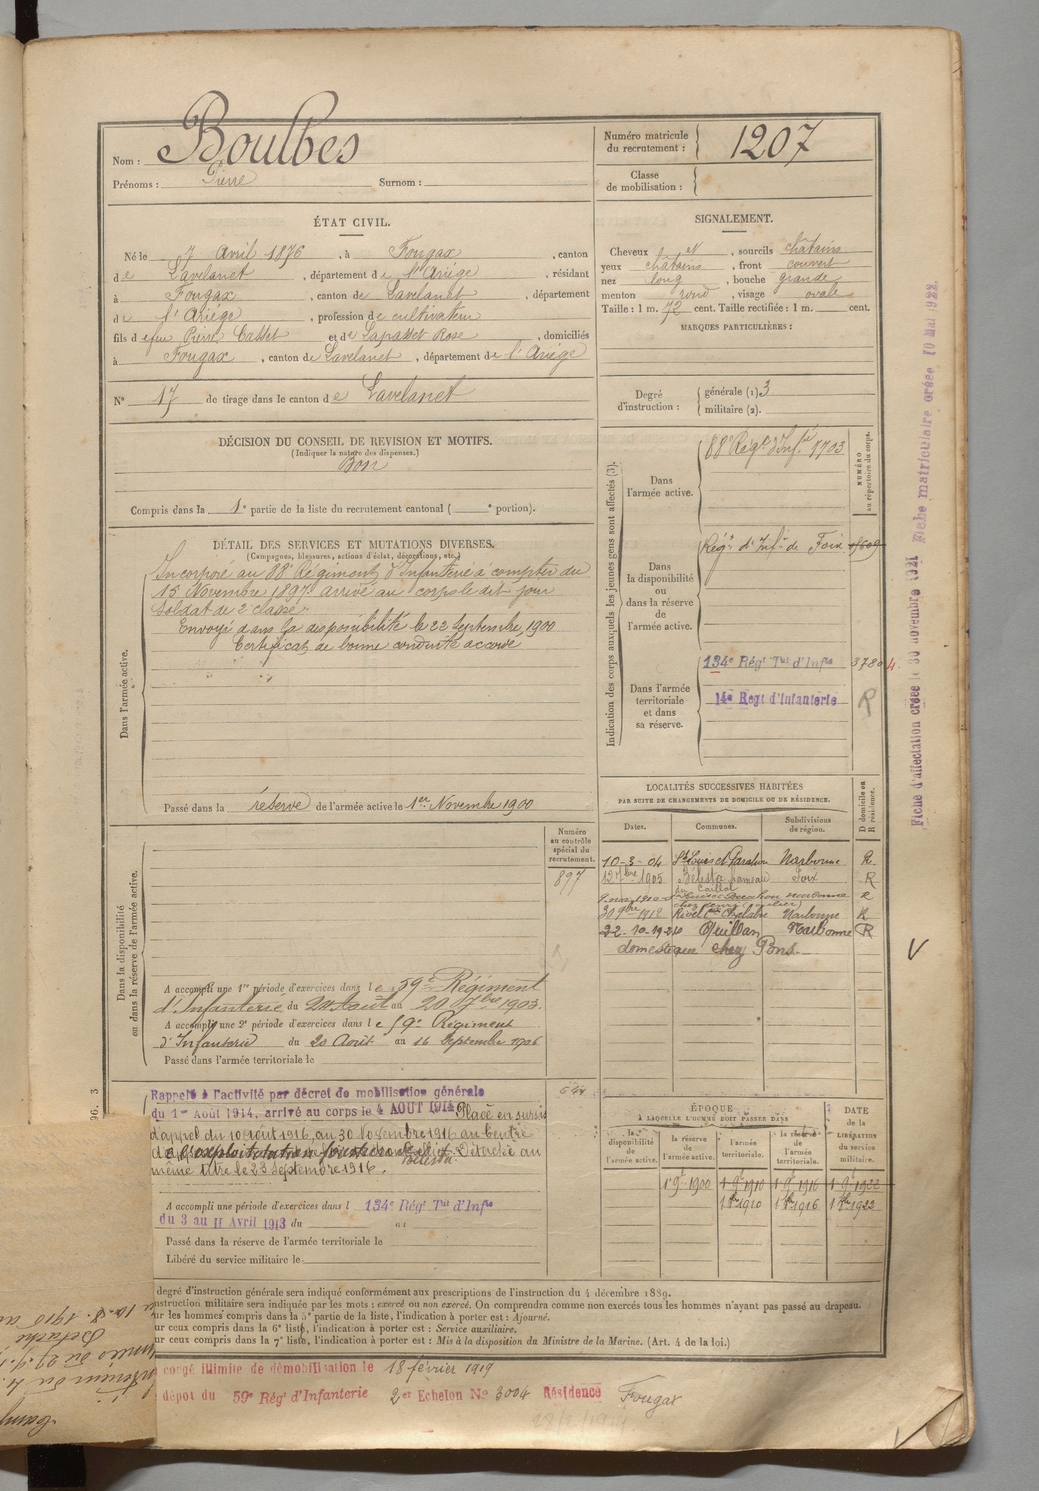 Nom : Boulbes
Prénoms : Pierre Surnom :
Numéro matricule du recrutement : 1207
Classe de mobilisation :
ÉTAT CIVIL.
Né le 7 Avril 1876, à Fougax, canton
de Lavelanet, département de l'Ariége, résidant
à Fougax, canton de Lavelanet, département
de l'Ariége, profession de cultivateur
fils d efeu Pierre Casset et de Lapasset Rose, domiciliés
à Fougax, canton de Lavelanet, département de l'Ariége
N° 17 de tirage dans le canton de Lavelanet
SIGNALEMENT.
Cheveux , sourcils châtains
yeux châtains, front couvert
nez long, bouche grande
menton rond, visage ovale
Taille : 1 m. 72 cent. Taille rectifiée : 1 m. cent.
MARQUES PARTICULIÈRES :
Degré d'instruction :
générale (1) 3
militaire (2).
DÉCISION DU CONSEIL DE REVISION ET MOTIFS.
(Indiquer la nature des dispenses.)
Bon
Compris dans la 1e partie de la liste du recrutement cantonal ( e portion).
DÉTAIL DES SERVICES ET MUTATIONS DIVERSES.
(Campagnes, blessures, actions d'éclat, décorations, etc.)
Dans l'armée active.
Incorporé au 88e Régiment d'Infanterie à compter du
15 Novembre 1897 arrivé au corps le dit jour
Soldat de 2e classe
Envoyé dans la disponibilité le 22 Septembre 1900
Certificat de bonne conduite accordé
Passé dans la réserve de l'armée active le 1er Novembre 1900
Indication des corps auxquels les jeunes gens sont affectés (3).
NUMÉRO au répertoire du corps.
Dans l'armée active.
88e Régt d'Infie 8703
Dans la disponibilité ou dans la réserve de l'armée active.
Régt d'Infie de Foix
Dans l'armée territoriale et dans sa réserve.
134e Régt Tal d'Infie 3780
14e Régt d'Infanterie R
LOCALITÉS SUCCESSIVES HABITÉES
PAR SUITE DE CHANGEMENTS DE DOMICILE OU DE RÉSIDENCE.
Dates. Communes. Subdivisions de région. D domicile ou R résidence.
10-3-04 St Louis et Parahou Narbonne R
12 7bre 1905 Bélesta hameau Foix R
du Caillol
30 9bre 1912 Rivel Con Chalabre Narbonne R
22-10-1920 Quillan Narbonne R
domestique chez Pons
Numéro au contrôle spécial du recrutement.
897
Dans la disponibilité ou dans la réserve de l'armée active.
A accompli une 1re période d'exercices dans le 59e Régiment
d'Infanterie du 24 Aout au 20 7bre 1903.
A accompli une 2e période d'exercices dans le 59e Régiment
d'Infanterie du 20 Août au 16 Septembre 1906
Passé dans l'armée territoriale le
Rappelé à l'activité par décret de mobilisation générale
du 1er Août 1914, arrivé au corps le 4 AOUT 1914 Placé en sursis
d'appel du 10 août 1916, au 30 Novembre 1916 au Centre
d'exploitation
Bélesta. Détaché au
même titre le 23 Septembre 1916.
A accompli une période d'exercices dans l 134e Régt Tal d'Infie
du 3 au 11 Avril 1913 du au
Passé dans la réserve de l'armée territoriale le
Libéré du service militaire le
ÉPOQUE
À LAQUELLE L'HOMME DOIT PASSER DANS
la disponibilité de l'armée active. la réserve de l'armée active. l'armée territoriale. la réserve de l'armée territoriale. DATE de la LIBÉRATION du service militaire.
1er 9e 1900 1er 9e 1910 1er 9e 1916 1er 9e 1922
1er 8bre 1910 1er 8bre 1916 1er 8bre 1922
degré d'instruction générale sera indiqué conformément aux prescriptions de l'instruction du 4 décembre 1889.
nstruction militaire sera indiquée par les mots : exercé ou non exercé. On comprendra comme non exercés tous les hommes n'ayant pas passé au drapeau.
ur les hommes compris dans la 5e partie de la liste, l'indication à porter est : Ajourné.
ur ceux compris dans la 6e liste, l'indication à porter est : Service auxiliaire.
ur ceux compris dans la 7e liste, l'indication à porter est : Mis à la disposition du Ministre de la Marine. (Art. 4 de la loi.)
congé illimité de démobilisation le 18 février 1919
dépot du 59e Rég. d'Infanterie 2e Echelon No 3004 Résidence Fougax
28/2/1919
Fiche d'affectation créée le 30 novembre 1921 Fiche matriculaire créée 10 Mai 1922